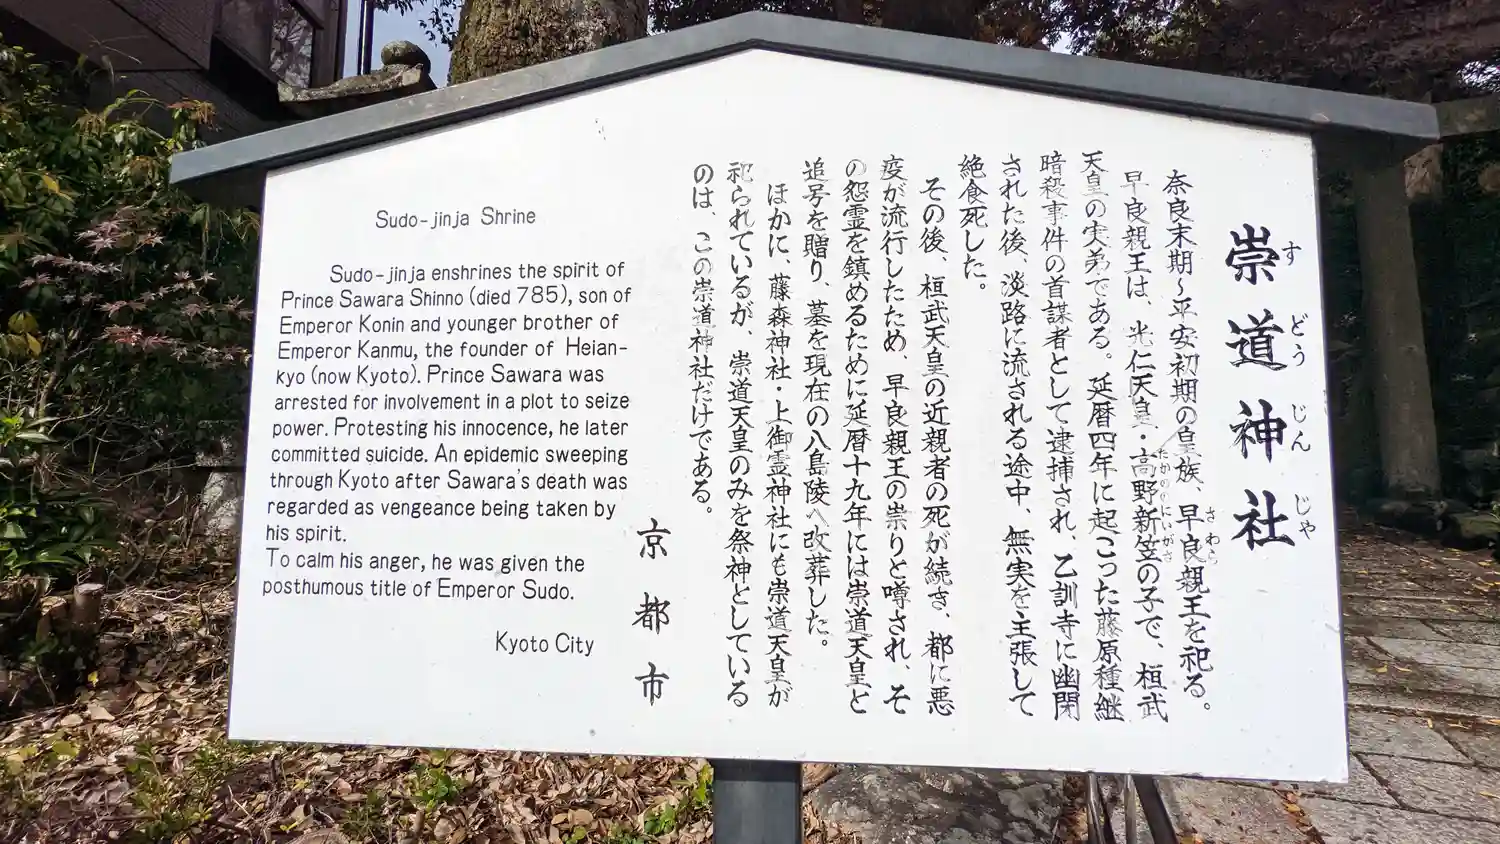 崇道神社
すどうじんじゃ
奈良末期〜平安初期の皇族、早良親王を祀る。
さわら
早良親王は、光仁天皇・高野新笠の子で、桓武
たかののにいがさ
天皇の実弟である。延暦四年に起こった藤原種継
暗殺事件の首謀者として逮捕され、乙訓寺に幽閉
された後、淡路に流される途中、無実を主張して
絶食死した。
その後、桓武天皇の近親者の死が続き、都に悪
疫が流行したため、早良親王の祟りと噂され、そ
の怨霊を鎮めるために延暦十九年には崇道天皇と
追号を贈り、墓を現在の八島陵へ改葬した。
ほかに、藤森神社・上御霊神社にも崇道天皇が
祀られているが、崇道天皇のみを祭神としている
のは、この崇道神社だけである。
京都市
Sudo-jinja Shrine
Sudo-jinja enshrines the spirit of
Prince Sawara Shinno (died 785), son of
Emperor Konin and younger brother of
Emperor Kanmu, the founder of Heian-
kyo (now Kyoto). Prince Sawara was
arrested for involvement in a plot to seize
power. Protesting his innocence, he later
committed suicide. An epidemic sweeping
through Kyoto after Sawara's death was
regarded as vengeance being taken by
his spirit.
To calm his anger, he was given the
posthumous title of Emperor Sudo.
Kyoto City